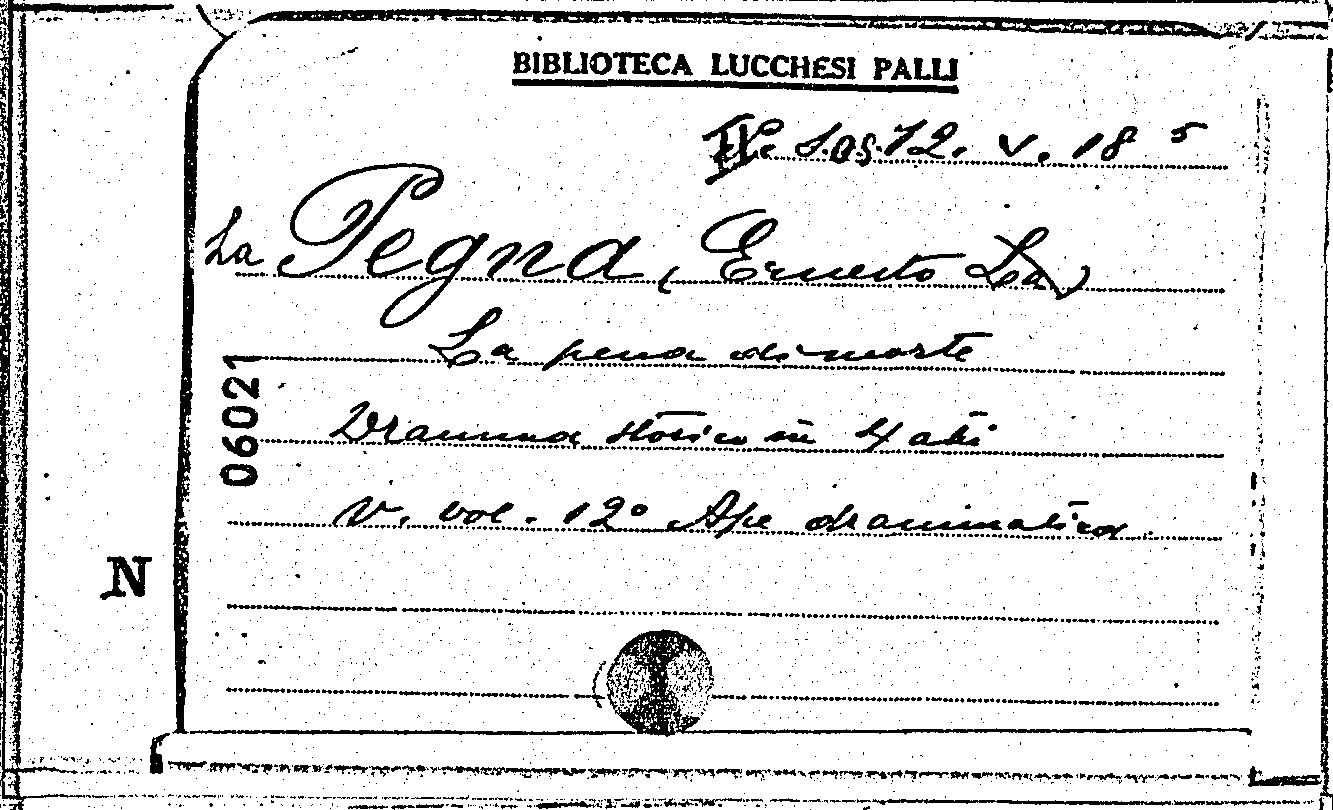 BIBLIOTECA LUCCHESI PALLI
12. V. 18 5
La Pegna, (Ernesto La)
La pena di morte
Dramma storico in 4 atti
V. vol. 12° Ape drammatica
06021
N